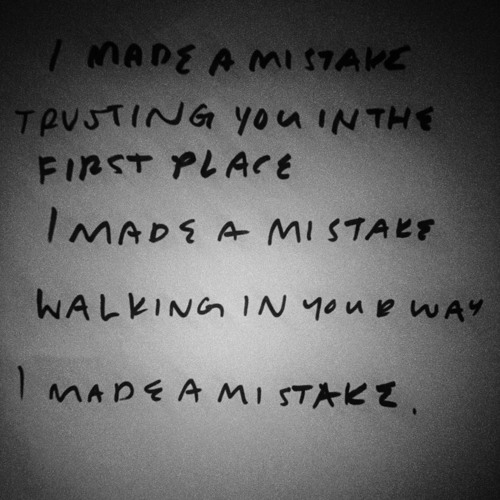 I MADE A MISTAKE
TRUSTING YOU IN THE
FIRST PLACE
I MADE A MISTAKE
WALKING IN YOUR WAY
I MADE A MISTAKE.